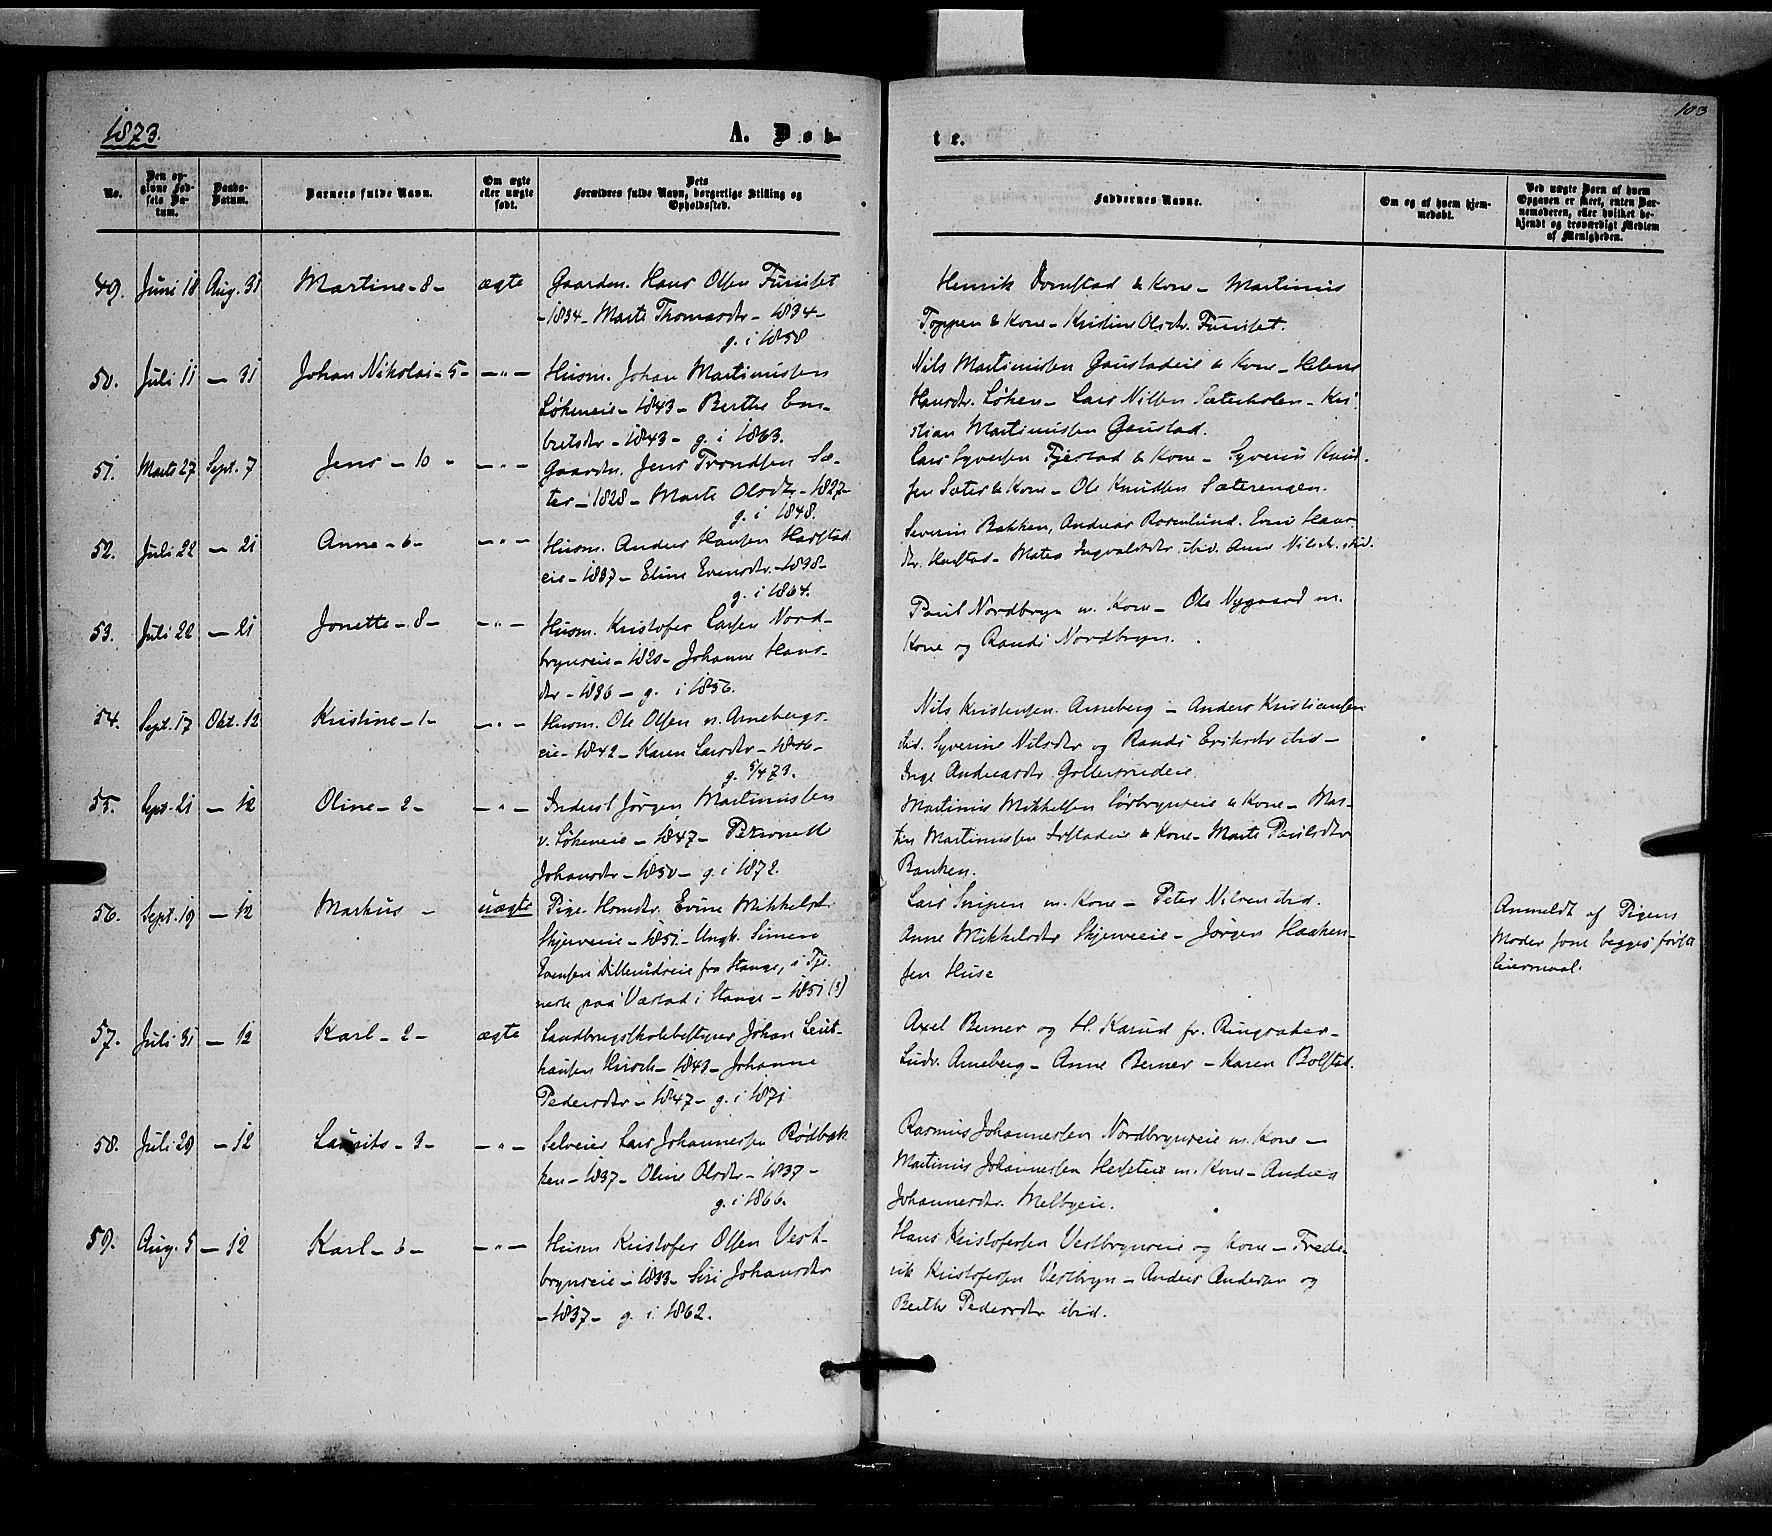 103
1873.
A. Døb-
te.
No.
Den op-
givne Fød-
sels Da-
tum.
Daabs-
Datum.
Barnets fulde Navn.
Om ægte
eller uægte
født.
Dets
Forældres fulde Navn, borgerlige Stilling og
Opholdssted.
Faddernes Navne.
Om og af hvem hjem-
medøbt.
Ved uægte Børn af hvem
Opgaven er skeet, enten Bar-
nemoderen, eller hvilket be-
kjendt og troværdigt Medlem
af Menigheden.
49. Juni 18 Aug. 31 Martine - 8 - ægte
Gaardm. Hans Olsen Furuset
- 1834 - Marte Thomasdtr - 1834 -
g. i 1858
Henrik Dornstad & Kone - Martinus
Toppen & Kone - Kristine Olsdtr. Furuset.
50. Juli 11 - 31 Johan Nikolai - 5 - - " -
Husm. Johan Martinussen
Løkeneie - 1843 - Berthe Em-
bretsdtr - 1843 - g. i 1863.
Nils Martinussen Gaustadeie & Kone - Helene
Hansdtr. Løken - Lars Nilsen Sæterholen - Kri-
stian Martinussen Gaustad.
51. Marts 27 Sept. 7 Jens - 10 - - " -
Gaardm. Jens Trondsen Sæ-
ter - 1828 - Marte Olsdtr - 1827 -
g. i 1848.
Lars Syversen Fjestad & Kone - Syverin Knud-
sen Sæter & Kone - Ole Knudsen Sæterengen.
52. Juli 22 - 21 Anne - 6 - - " -
Husm. Anders Hansen Harstad
eie - 1837 - Eline Evensdtr. - 1838 -
g. i 1864.
Severin Bakken, Andreas Rosenlund. Eni Hans
dtr. Harstad - Mates Ingvaldsdtr. ibid. Anne Nilsdtr. ibid.
53. Juli 22 - 21 Jonette - 8 - - " -
Husm. Kristofer Larsen Nord-
brynseie - 1820 - Johanne Hans-
dtr - 1836 - g. i 1856.
Paul Nordbryn m. Kone - Ole Nygaard m.
Kone og Randi Nordbryn.
54. Sept. 17 Okt. 12 Kristine - 1 - - " -
Husm. Ole Olsen n. Arnebergs-
eie - 1842 - Karen Larsdtr - 1846 -
g. 5/4 73.
Nils Kristensen Arneberg - Anders Kristiansen
ibid. Syverine Nilsdtr og Randi Eriksdtr ibid -
Inge Andreasdtr
55. Sept. 21 - 12 Oline - 2 - - " -
Inderst Jørgen Martinussen
v. Løkeneie - 1847 - Petronelle
Johansdtr - 1850 - g. i 1872.
Martinus Mikkelsen Sørbrynseie & Kone - Mar-
tin Martinussen & Kone - Marte Paulsdtr
Banken.
56. Sept. 19 - 12 Markus - uægte
Pige. Husmdtr. Evine Mikkelsdtr
Skjerveeie - 1851 - Ungk. Simen
Svensen Dillerudeie fra Stange, i Tje-
neste paa Værstad i Stange - 1851 (?)
Lars Snipen m. Kone - Peter Nilsen ibid.
Anne Mikkelsdtr Skjerveeie - Jørgen Haaken-
sen Huse
Anmeldt af Pigens
Moder som begges første
Leiermaal.
57. Juli 31 - 12 Karl - 2 - ægte
Landbrugsskolebestyrer Johan Leut-
hausen Hirsch - 1843 - Johanne
Pedersdtr - 1847 - g. i 1871
Axel Berner og H. Karud fr. Ringsaker -
Ludv. Arneberg - Anne Berner - Karen Bolstad.
58. Juli 29 - 12 Laurits - 3 - - " -
Selveier Lars Johannessen Rødbæk
ken - 1837 - Oline Olsdtr - 1837 -
g. i 1866.
Rasmus Johannessen Nordbrynseie m. Kone -
Martinus Johannessen m. Kone - Andrea
Johannesdtr. Melbyeie.
59. Aug. 5 - 12 Karl - 6 - - " -
Husm Kristofer Olsen Vest-
brynseie - 1833 - Siri Johansdtr
- 1837 - g. i 1862.
Hans Kristofersen Vestbrynseie og Kone - Frede-
rik Kristofersen Vestbryn - Anders Andersen og
Berthe Pedersdtr ibid.